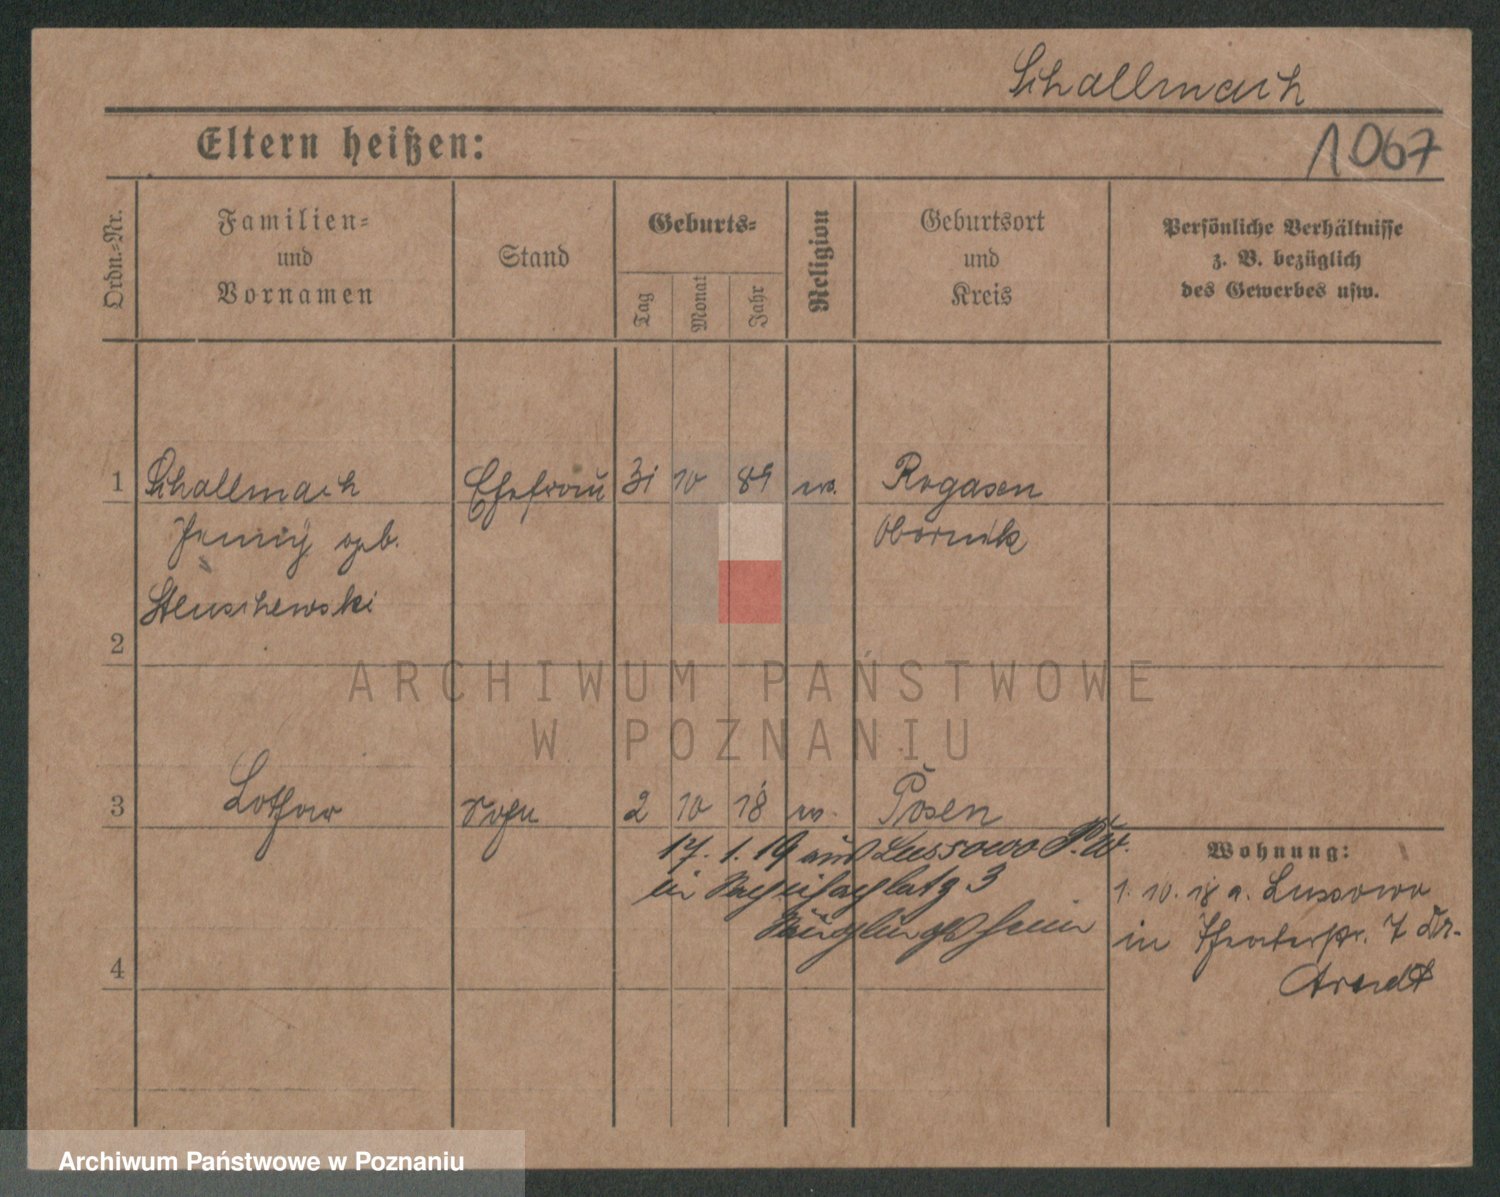 Schallmach
Eltern heißen:
1067
Ordn.-Nr.
Familien-
und
Vornamen
Stand
Geburts-
Tag
Monat
Jahr
Religion
Geburtsort
und
Kreis
Persönliche Verhältnisse
z. B. bezüglich
des Gewerbes usw.
1 Schallmach Ehefrau 31 10 89 Rogasen
Jenny geb. Obornik
2
ARCHIWUM PAŃSTWOWE
W POZNANIU
3 Lothar Sohn 2 10 18 Posen
17. 1. 19 aus Lussowo P.W.
in 3
Säuglingsheim
Wohnung:
1. 10. 18 a. Lussowo
in Theaterstr. 7 Dr.
Arendt
4
Archiwum Państwowe w Poznaniu